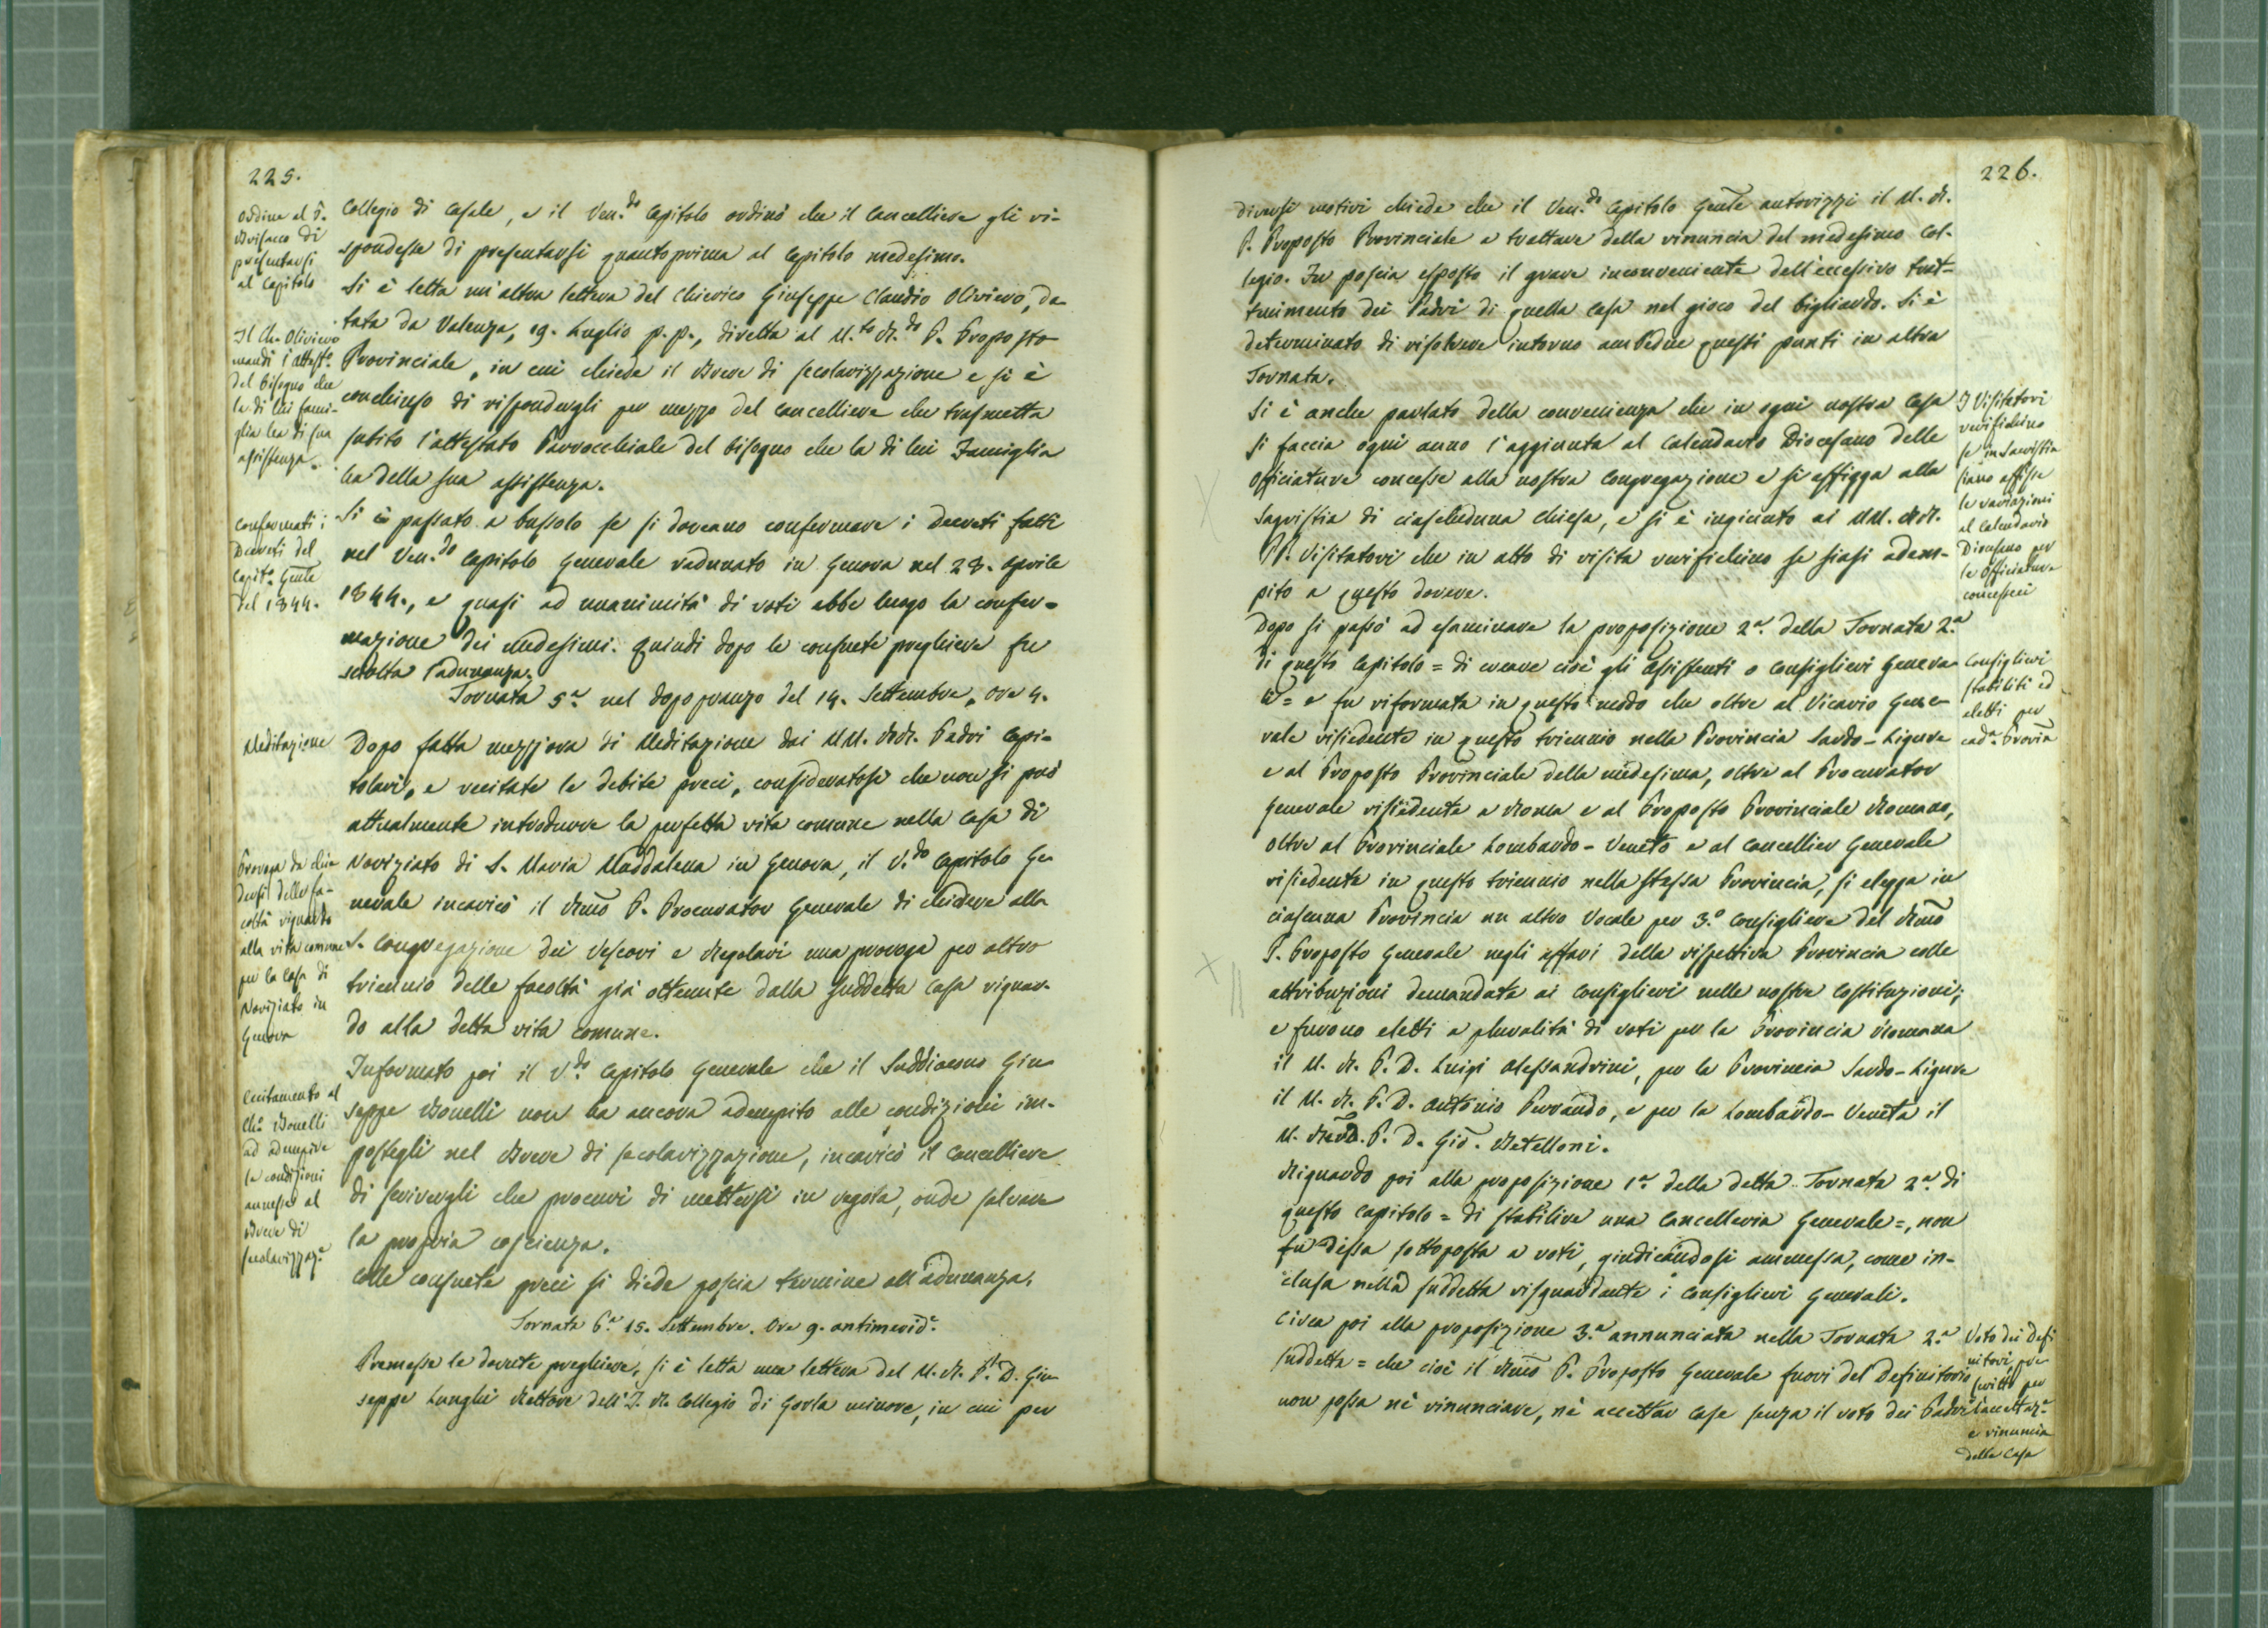 225.
Ordine al P.
Brisacco di
presentarsi
al Capitolo
Collegio di Casale, e il Ven.do Capitolo ordinò che il Cancelliere gli ri-
spondesse di presentarsi quantoprima al Capitolo medesimo.
Si è letta un'altra lettera del Chierico Giuseppe Claudio Oliviero, da-
tata da Valenza, 19. Luglio p. p., diretta al M.to R.do P. Proposto
Provinciale, in cui chiede il Breve di secolarizzazione e si è
conchiuso di rispondergli per mezzo del Cancelliere che trasmetta
subito l'attestato Parrocchiale del bisogno che la di lui Famiglia
ha della sua assistenza.
Il Ch. Oliviero
mandi l'attest.o
del bisogno che
la di lui fami-
glia ha di sua
assistenza.
Si è passato a bussolo se si doveano confermare i Decreti fatti
nel Ven.do Capitolo Generale radunato in Genova nel 28. Aprile
1844., e quasi ad unanimità di voti ebbe luogo la confer-
mazione dei medesimi. Quindi dopo le consuete preghiere fu
sciolta l'adunanza.
Confermati i
Decreti del
Capit.o Gnle
del 1844.
Tornata 5.a nel dopopranzo del 14. Settembre, ore 4.
Meditazione
Dopo fatta mezz'ora di Meditazione dai MM. RR. Padri Capi-
tolari, e recitate le debite preci, consideratosi che non si può
attualmente introdurre la perfetta vita comune nella Casa di
Noviziato di S. Maria Maddalena in Genova, il V.do Capitolo Ge-
nerale incaricò il Rmo P. Procurator Generale di chiedere alla
S. Congregazione dei Vescovi e Regolari una proroga per altro
triennio delle facoltà già ottenute dalla suddetta Casa riguar-
do alla detta vita comune.
Proroga da chie-
dersi delle fa-
coltà riguardo
alla vita comune
per la Casa di
Noviziato in
Genova
Informato poi il V.do Capitolo Generale che il Suddiacono Giu-
seppe Bonelli non ha ancora adempito alle condizioni im-
postegli nel Breve di secolarizzazione, incaricò il Cancelliere
di scrivergli che procuri di mettersi in regola, onde salvare
la propria coscienza.
Eccitamento al
Ch.o Bonelli
ad adempire
le condizioni
annesse al
Breve di
secolarizzaz.e
Colle consuete preci si diede poscia termine all'adunanza.
Tornata 6.a 15. Settembre. Ore 9. antimerid.e
Premesse le dovute preghiere, si è letta una lettera del M. R. P. D. Giu-
seppe Lunghi Rettore dell'I. R. Collegio di Gorla minore, in cui per
226.
diversi motivi chiede che il Ven.do Capitolo Gnle autorizzi il M. R.
P. Proposto Provinciale a trattare della rinuncia del medesimo Col-
legio. Fu poscia esposto il grave inconveniente dell'eccessivo trat-
tenimento dei Padri di quella Casa nel gioco del bigliardo. Si è
determinato di risolvere intorno ambedue questi punti in altra
Tornata.
Si è anche parlato della convenienza che in ogni nostra Casa
si faccia ogni anno l'aggiunta al Calendario Diocesano delle
Officiature concesse alla nostra Congregazione e si affigga alla
Sagristia di ciascheduna Chiesa, e si è ingiunto ai MM. RR.
PP. Visitatori che in atto di visita verifichino se siasi adem-
pito a questo dovere.
I Visitatori
verifichino
se in Sacristia
siano affisse
le variazioni
al Calendario
Diocesano per
le Officiature
concesseci
Dopo si passò ad esaminare la proposizione 2.a della Tornata 2.a
di questo Capitolo = di creare cioè gli Assistenti o Consiglieri Genera-
li = e fu riformata in questo modo che oltre al Vicario Gene-
rale risiedente in questo triennio nella Provincia Sardo-Ligure
e al Proposto Provinciale della medesima, oltre al Procurator
Generale risiedente a Roma e al Proposto Provinciale Romano,
oltre al Provinciale Lombardo-Veneto e al Cancellier Generale
risiedente in questo triennio nella stessa Provincia, si elegga in
ciascuna Provincia un altro Vocale per 3.o Consigliere del Rmo
P. Proposto Generale negli affari della rispettiva Provincia colle
attribuzioni demandate ai Consiglieri nelle nostre Costituzioni;
e furono eletti a pluralità di voti per la Provincia Romana
il M. R. P. D. Luigi Alessandrini, per la Provincia Sardo-Ligure
il M. R. P. D. Antonio Ferrando, e per la Lombardo-Veneta il
M. Revd. P. D. Gio. Metelloni.
Consiglieri
stabiliti ed
eletti per
cad.a Provin
Riguardo poi alla proposizione 1.a della detta Tornata 2.a di
questo Capitolo = di stabilire una Cancelleria Generale =, non
fu dessa sottoposta a voti, giudicandosi ammessa, come in-
clusa nella suddetta risguardante i Consiglieri Generali.
Circa poi alla proposizione 3.a annunciata nella Tornata 2.a
suddetta = che cioè il Rmo P. Proposto Generale fuori del Definitorio
non possa nè rinunciare, nè accettar Case senza il voto dei Padri
Voto dei Defi
nitori pre
scritto per
l'accettaz.e
e rinuncia
delle Case